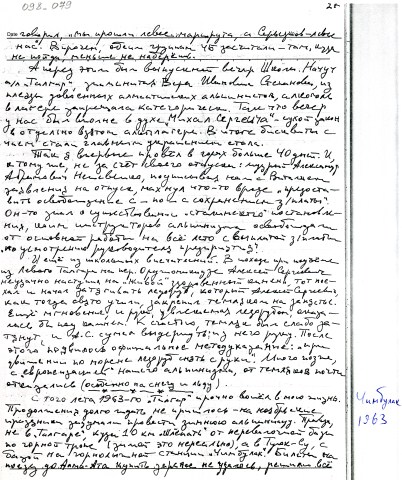 098. 079
25
говорил, "мы прошли левее маршрута, а Серьезков - левее
нас". Впрочем, обеим группам 4Б засчитали - там, куда
ни пойди, меньше не наберешь.
А перед этим был выпускной вечер Школы. Начуч
а/л "Талгар", знаменитая Вера Ивановна Степанова, из
плеяды довоенных алматинских альпинистов, алкоголь
в лагере запрещала категорически. Так что вечер
у нас был вполне в духе Михал Сергеича" - сухой закон
в отдельно взятом альплагере. В итоге бисквиты с
чаем стали главным украшением стола.
Так я впервые провел в горах больше 40 дней. И,
к тому же, не за счет своего отпуска: мудрый Александр
подписывая нам с Виталием
заявления на отпуск, махнул что-то вроде "предоста-
вить освобождение с - по - с сохранением з/платы".
Он-то знал о существовании "сталинского" постановле-
ния, коим инструкторов альпинизма освобождали
от основной работы на всё лето с выплатой з/платы
по усмотрению руководителя предприятия.
И ещё из школьных впечатлений. В походе при подъеме
из Левого Талгара на пер. Орджоникидзе Алексей Сергеевич
неудачно наступил на "живой" здоровенный камень, тот по-
ехал и начал затягивать ледоруб, который Алексей Сергеевич,
как тогда этому учили, закрепил темляком на запястье.
Ещё мгновение, и рука, увлекаемая ледорубом, оказа-
лась бы под камнем. К счастью, темляк был слабо за-
тянут, и А.С. сумел выдернуть из него руку. После
этого появилось официальное методуказание: "при
движении по морене ледоруб снять с руки". Много позже,
с "европеизацией" нашего альпинизма, от темляков почти
отказались (особенно на снегу и льду).
С того лета 1963-го "Талгар" прочно вошёл в мою жизнь.
Продолжения долго ждать не пришлось - на ноябрьские
праздники задумали провести зимнюю альпиниаду. Правда,
не в "Талгаре", куда 10 км "шлёпать" от перевалочной базы
по горной тропе (зимой это нереально), а в Туюк-Су, с
базой на горнолыжной станции "Чимбулак". Билеты на
поезд до Алма-Ата купить заранее не удалось, решили всё
Чимбулак
1963